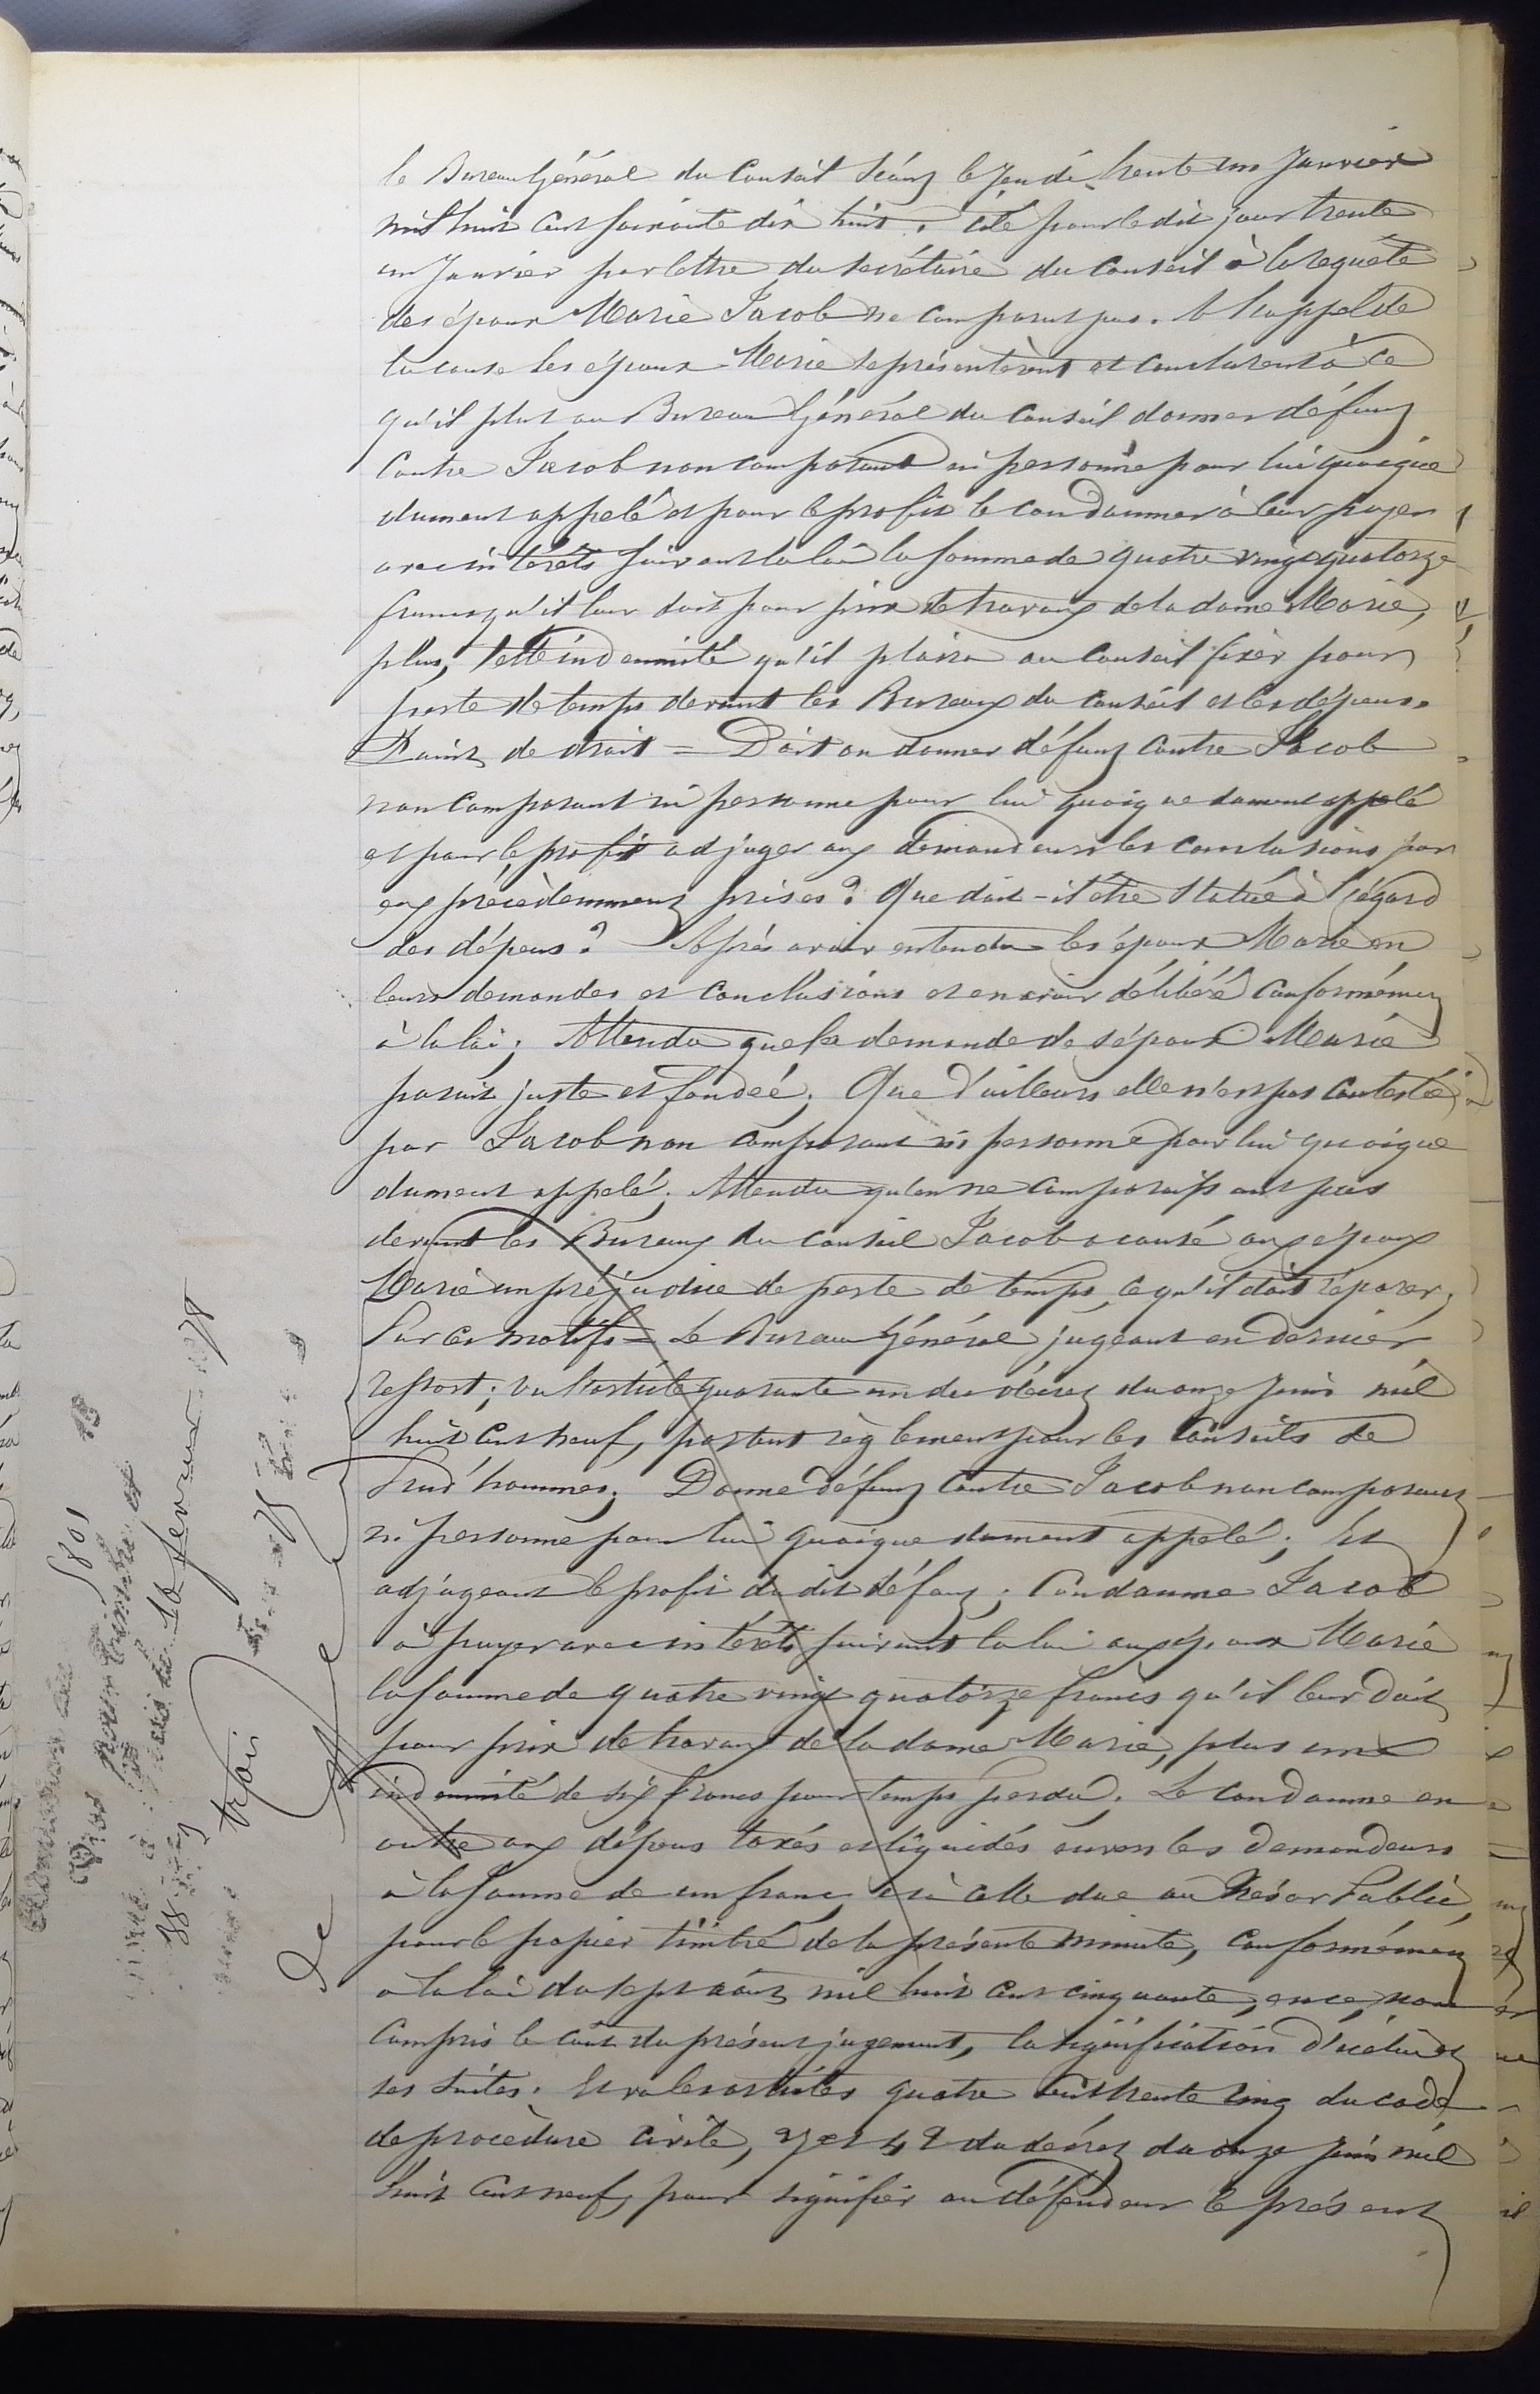 le Bureau Général du Conseil séant le Jeudi trente un Janvier
mil huit cent soixante dix huit. Cité pour le dit jour trente
un Janvier par lettre du secrétaire du Conseil à la requête
des époux Marie Jacob ne comparut pas. A l'appel de
la cause les époux Marie se présentèrent et conclurent à ce
qu'il plut au Bureau Général du Conseil donner défaut
contre Jacob non comparant ni personne pour lui quoique
dument appelé et pour le profit le condamner à leur payer
avec intérêts suivant la loi la somme de quatre vingt quatorze
francs qu'il leur doit pour prix de travaux de la dame Marie,
plus, telle indemnité qu'il plaira au Conseil fixer pour
perte de temps devant les Bureaux du Conseil et les dépens.
Point de droit = Doit on donner défaut contre Jacob
non comparant ni personne pour lui quoique dument appelé
et pour le profit adjuger aux demandeurs les conclusions par
eux précédemment prises? Que doit-il être statué à l'égard
des dépens? Après avoir entendu les époux Marie en
leurs demandes et conclusions et en avoir délibéré conformément
à la loi; Attendu que la demande des époux Marie
parait juste et fondée; Que d'ailleurs elle n'est pas contestée
par Jacob non comparant ni personne pour lui quoique
dument appelé; Attendu qu'en ne comparaissant pas
devant les Bureaux du Conseil Jacob a causé aux époux
Marie un préjudice de perte de temps ce qu'il doit réparer;
Par ces motifs = Le Bureau Général jugeant en dernier
ressort; vu l'article quarante un du décret du onze Juin mil
huit cent neuf, portant règlement pour les Conseils de
Prud'hommes; Donne défaut contre Jacob non comparant
ni personne pour lui quoique dument appelé; Et
adjugeant le profit du dit défaut; Condamne Jacob
à payer avec intérêts suivant la loi aux époux Marie
la somme de quatre vingt quatorze francs qu'il leur doit
pour prix de travaux de la dame Marie, plus une
indemnité de six francs pour temps perdu. Le condamne en
outre aux dépens taxés et liquidés envers les demandeurs
à la somme de un franc, et à celle due au Trésor Public,
pour le papier timbré de la présente minute, conformément
à la loi du sept août mil huit cent cinquante, en ce, non
compris le coût du présent jugement, la signification d'icelui et
ses suites. Et vu les articles quatre cent trente cinq du code
de procédure civile, 27 et 42 du décret du onze Juin mil
huit cent neuf, pour signifier au défendeur le présent